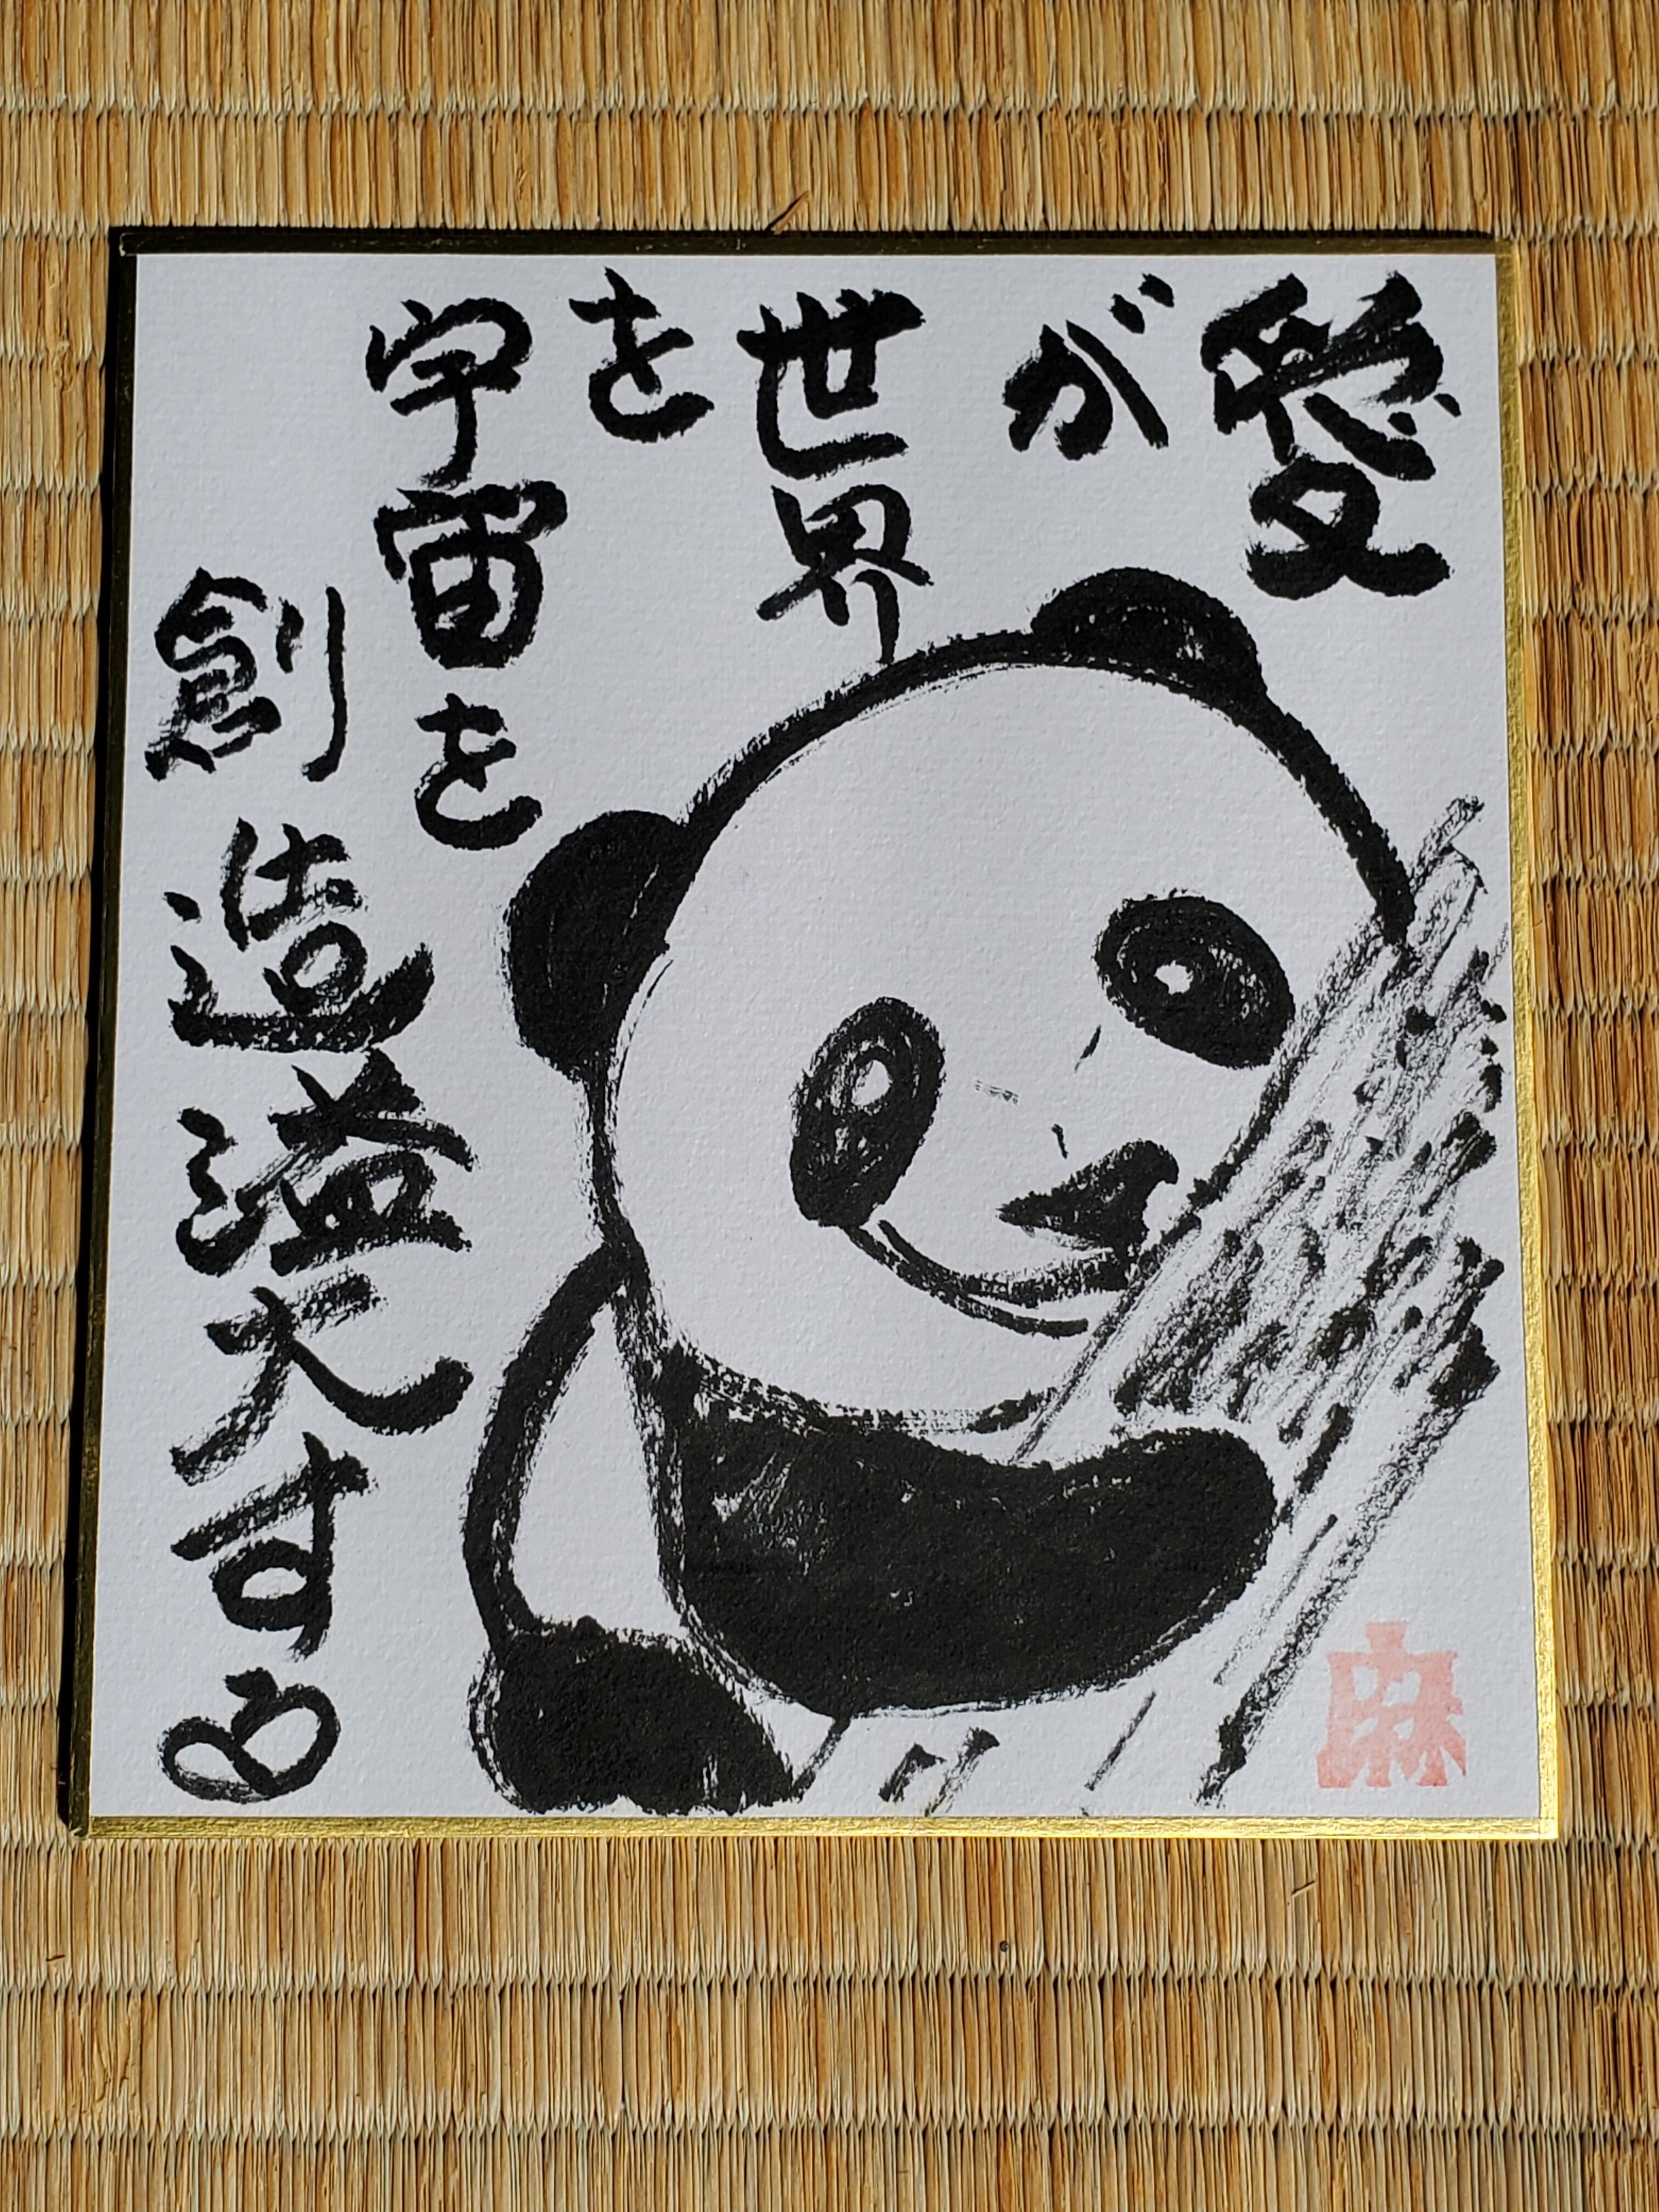 愛
が
世界
を
宇宙を
創造溢大する